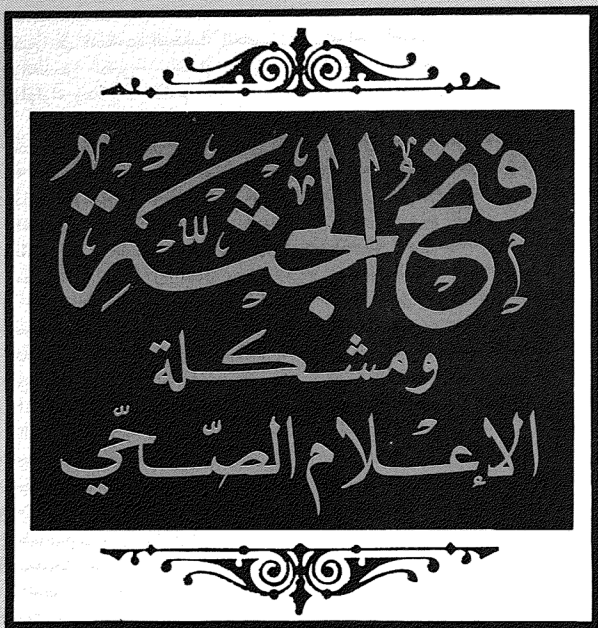 فتح الجثّةِ
ومشكلة
الإعلام الصّحّي